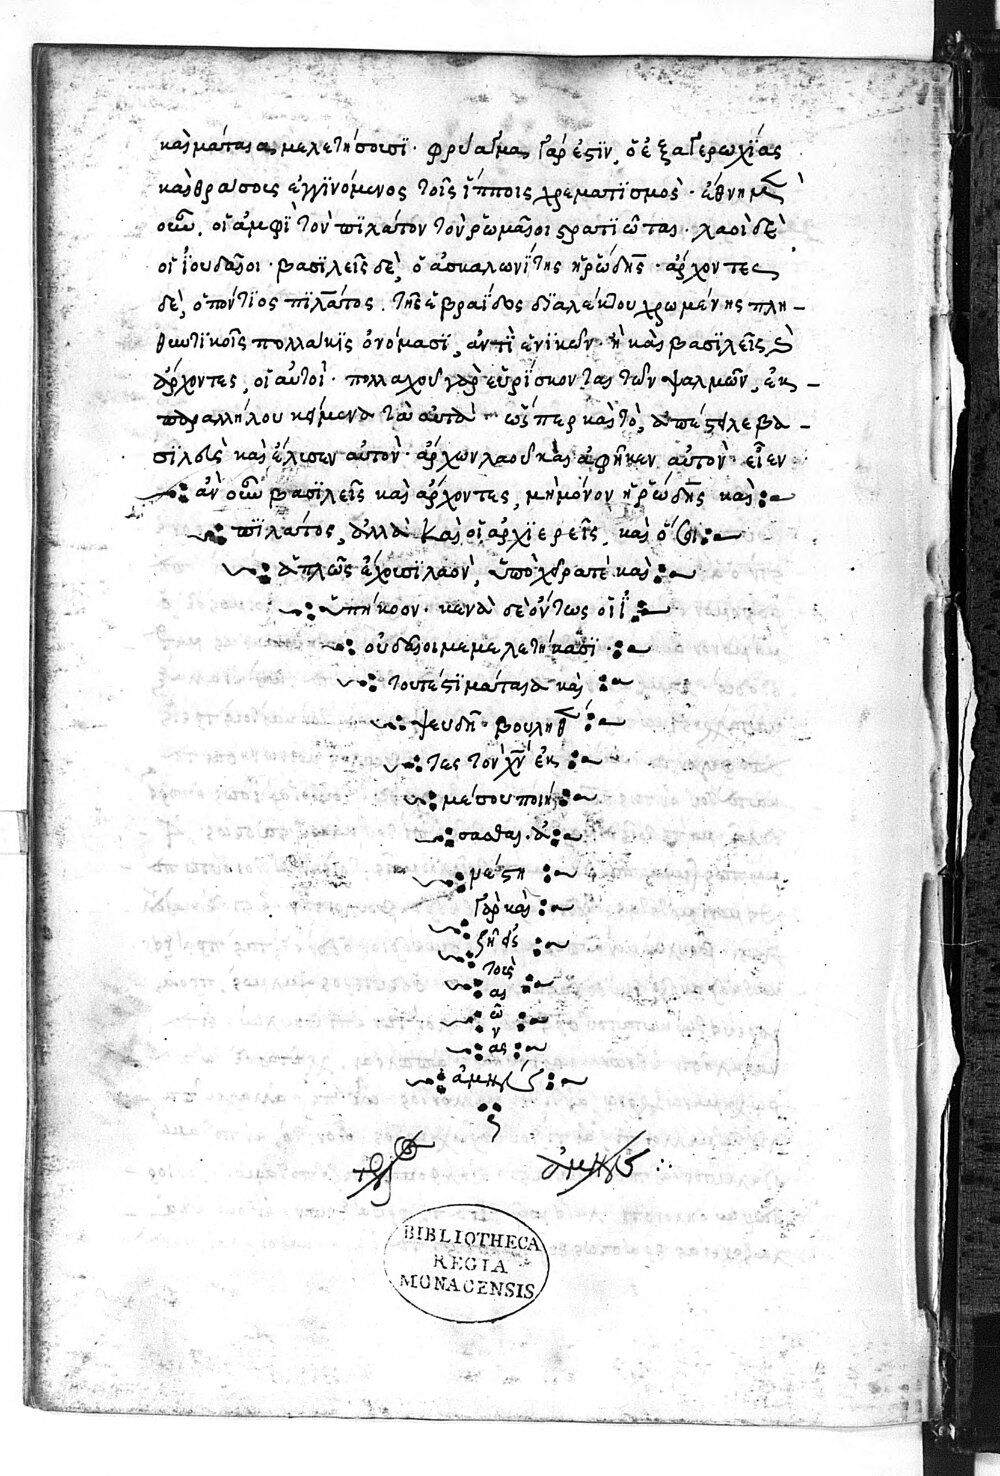 καὶ μάταια μελετήσουσι· φρύαγμα γάρ ἐστιν, ὁ ἐξ ἀγερωχίας
καὶ θράσους ἐγγινόμενος τοῖς ἵπποις χρεματισμὸς· ἔθνη μὲν
οὖν, οἱ ἀμφὶ τὸν πιλάτον τὸν ῥωμαῖοι στρατιῶται· λαοὶ δὲ
οἱ ἰουδαῖοι· βασιλεῖς δὲ, ὁ ἀσκαλωνίτης ἡρώδης· ἄρχοντες
δὲ, ὁ πόντιος πιλάτος. τῆς ἑβραΐδος διαλέκτου χρωμένης πλη-
θυντικοῖς πολλάκις ὀνόμασι, ἀντὶ ἑνικῶν· ἢ καὶ βασιλεῖς καὶ
ἄρχοντες, οἱ αὐτοὶ· πολλαχοῦ γὰρ εὑρίσκονται τῶν ψαλμῶν, ἐκ-
παραλλήλου κείμενα τὰ αὐτὰ· ὥσπερ καὶ τὸ, ἀπέστειλε βα-
σιλεὺς καὶ ἔλυσεν αὐτὸν· ἄρχων λαοῦ καὶ ἀφῆκεν αὐτὸν· εἶεν
ἂν οὖν βασιλεῖς καὶ ἄρχοντες, μὴ μόνον ἡρώδης καὶ
πιλάτος, ἀλλὰ καὶ οἱ ἀρχιερεῖς, καὶ
ἁπλῶς ἔχουσι λαὸν, ὑπὸ χεῖρα τε καὶ
ὑπήκοον· κενὰ δὲ ὄντως οἱ ἰ
ουδαῖοι μεμελετήκασι
τουτέστι μάταια καὶ
ψευδῆ· βουληθέν
τες τὸν χν ἐκ
μέσου ποιή
σασθαι· ἀ
νέστη
γὰρ καὶ
ζῆ εἰς
τοὺς
αι
ῶ
ν
ας
ἀμήν
ἀμήν
BIBLIOTHECA
REGIA
MONACENSIS